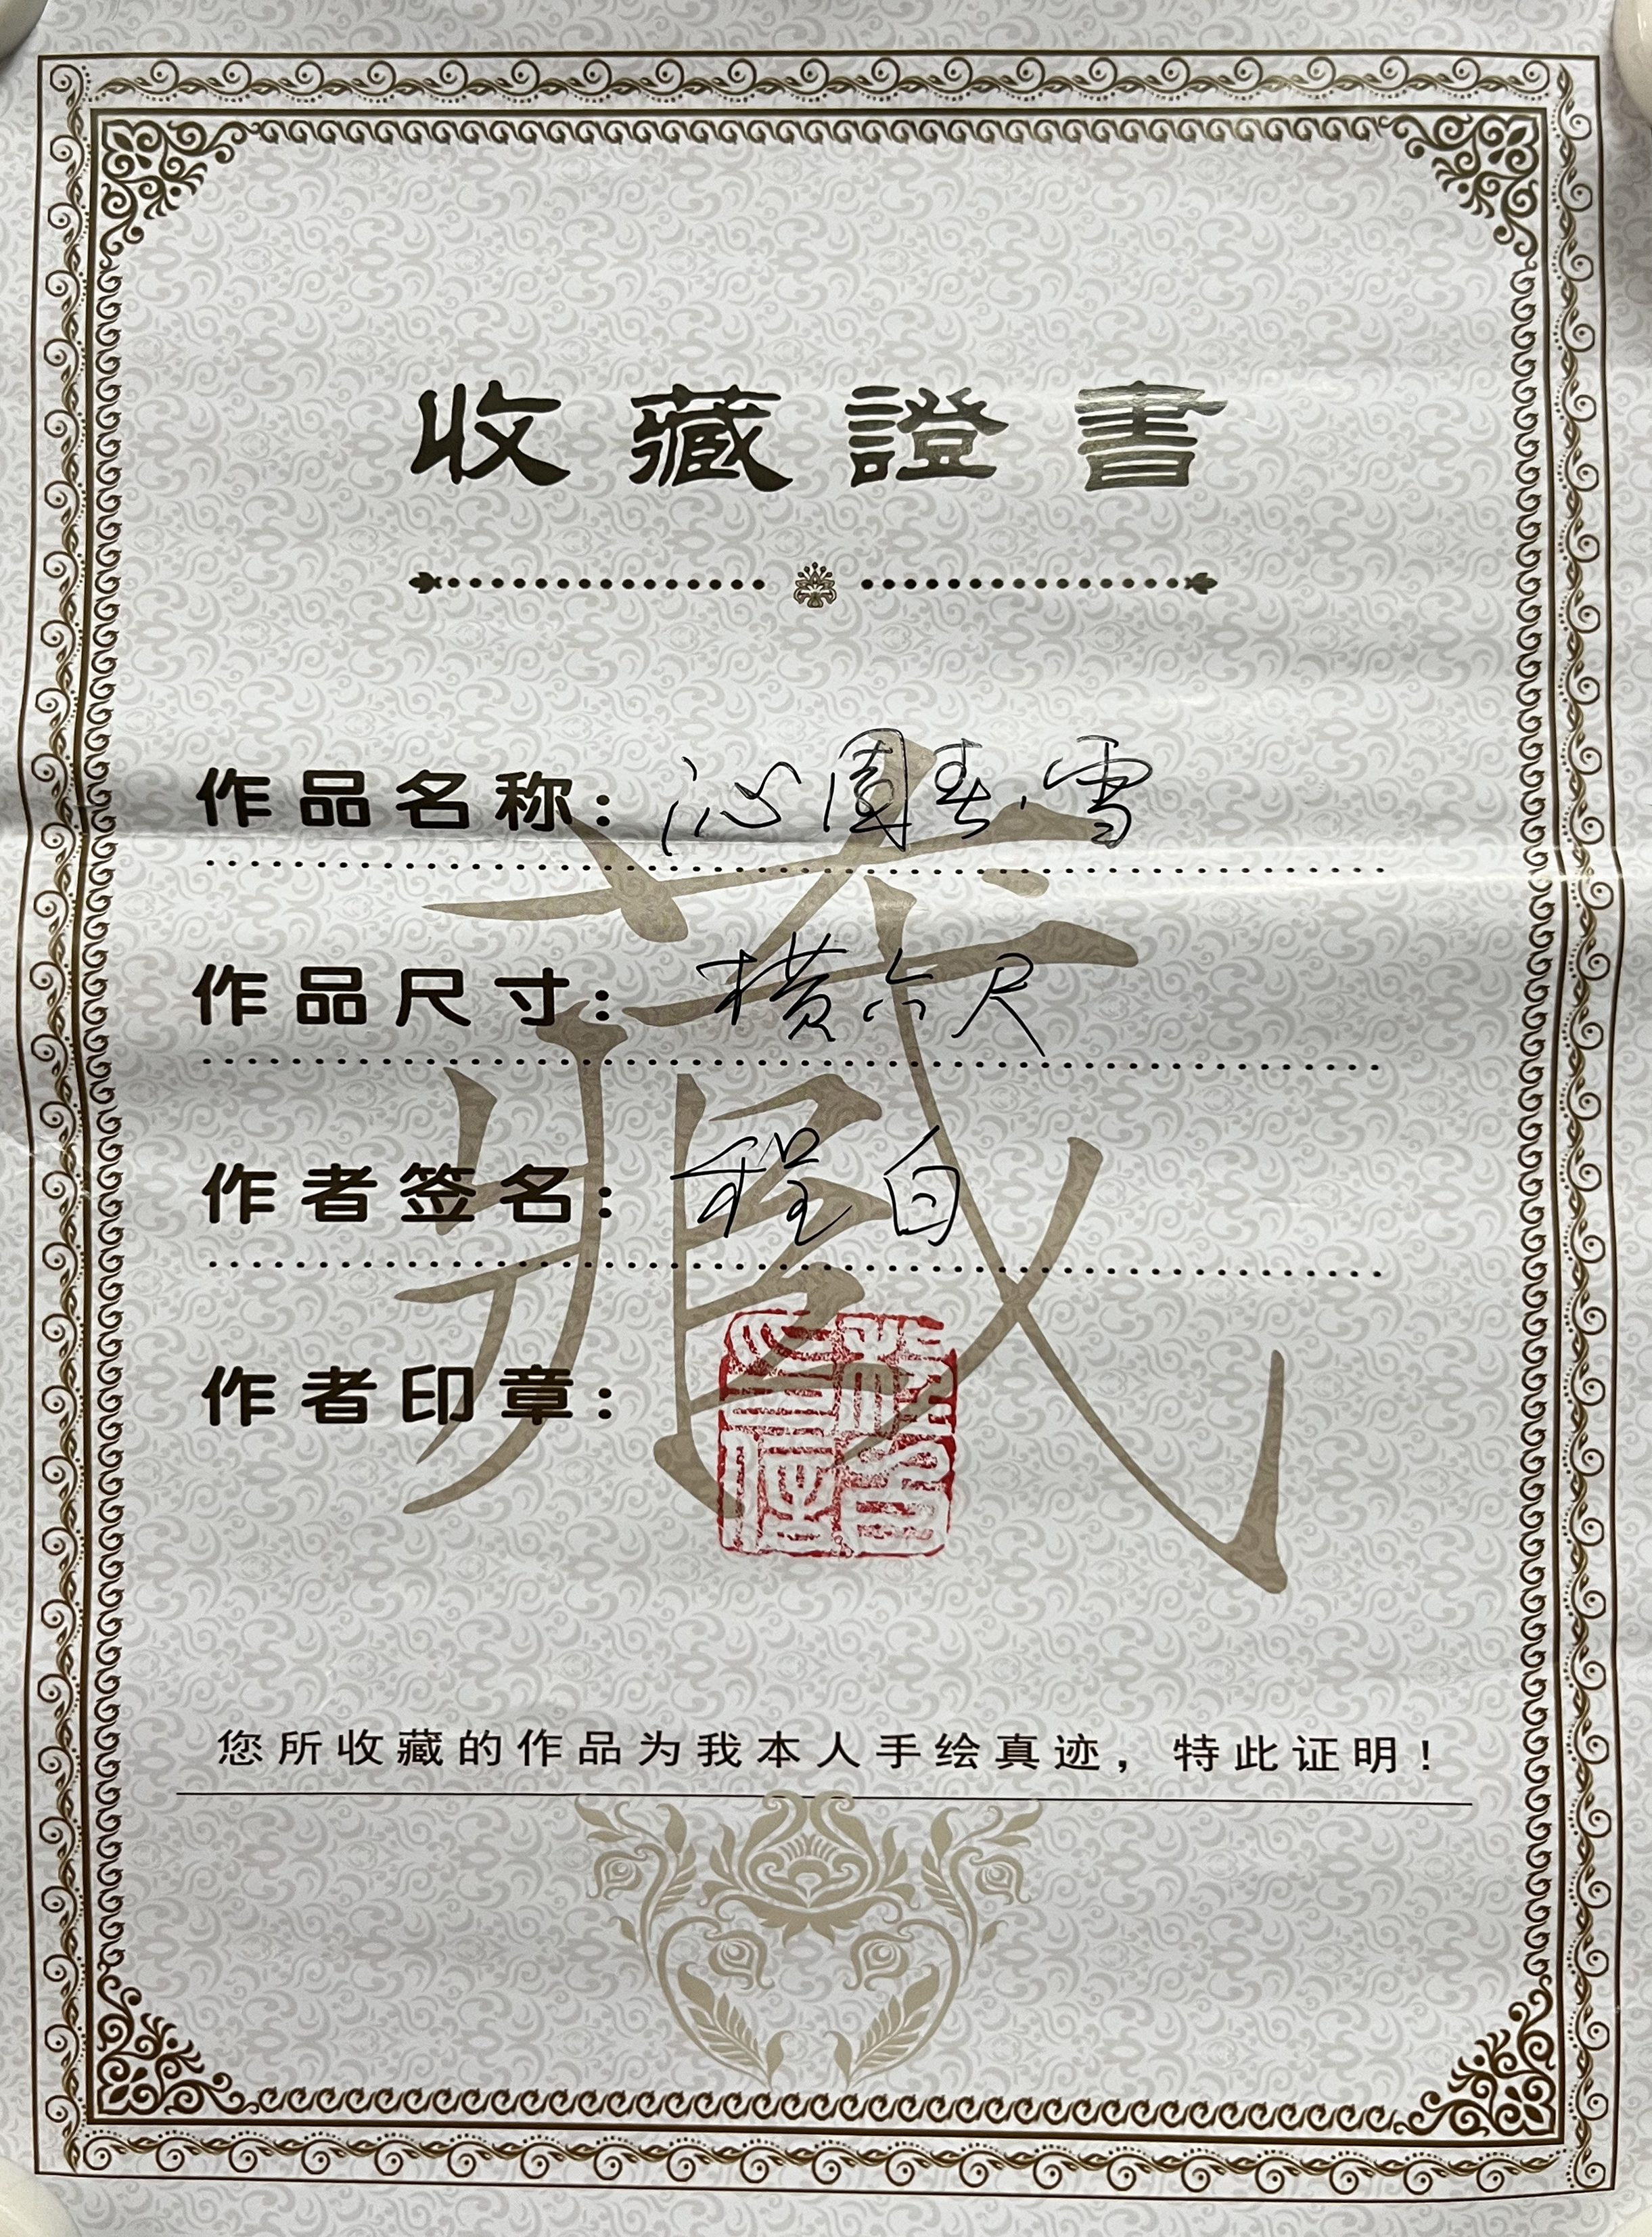 收藏證書
作品名称：沁園春.雪
作品尺寸：横六尺
作者签名：程白
作者印章：
藏
您所收藏的作品为我本人手绘真迹，特此证明！